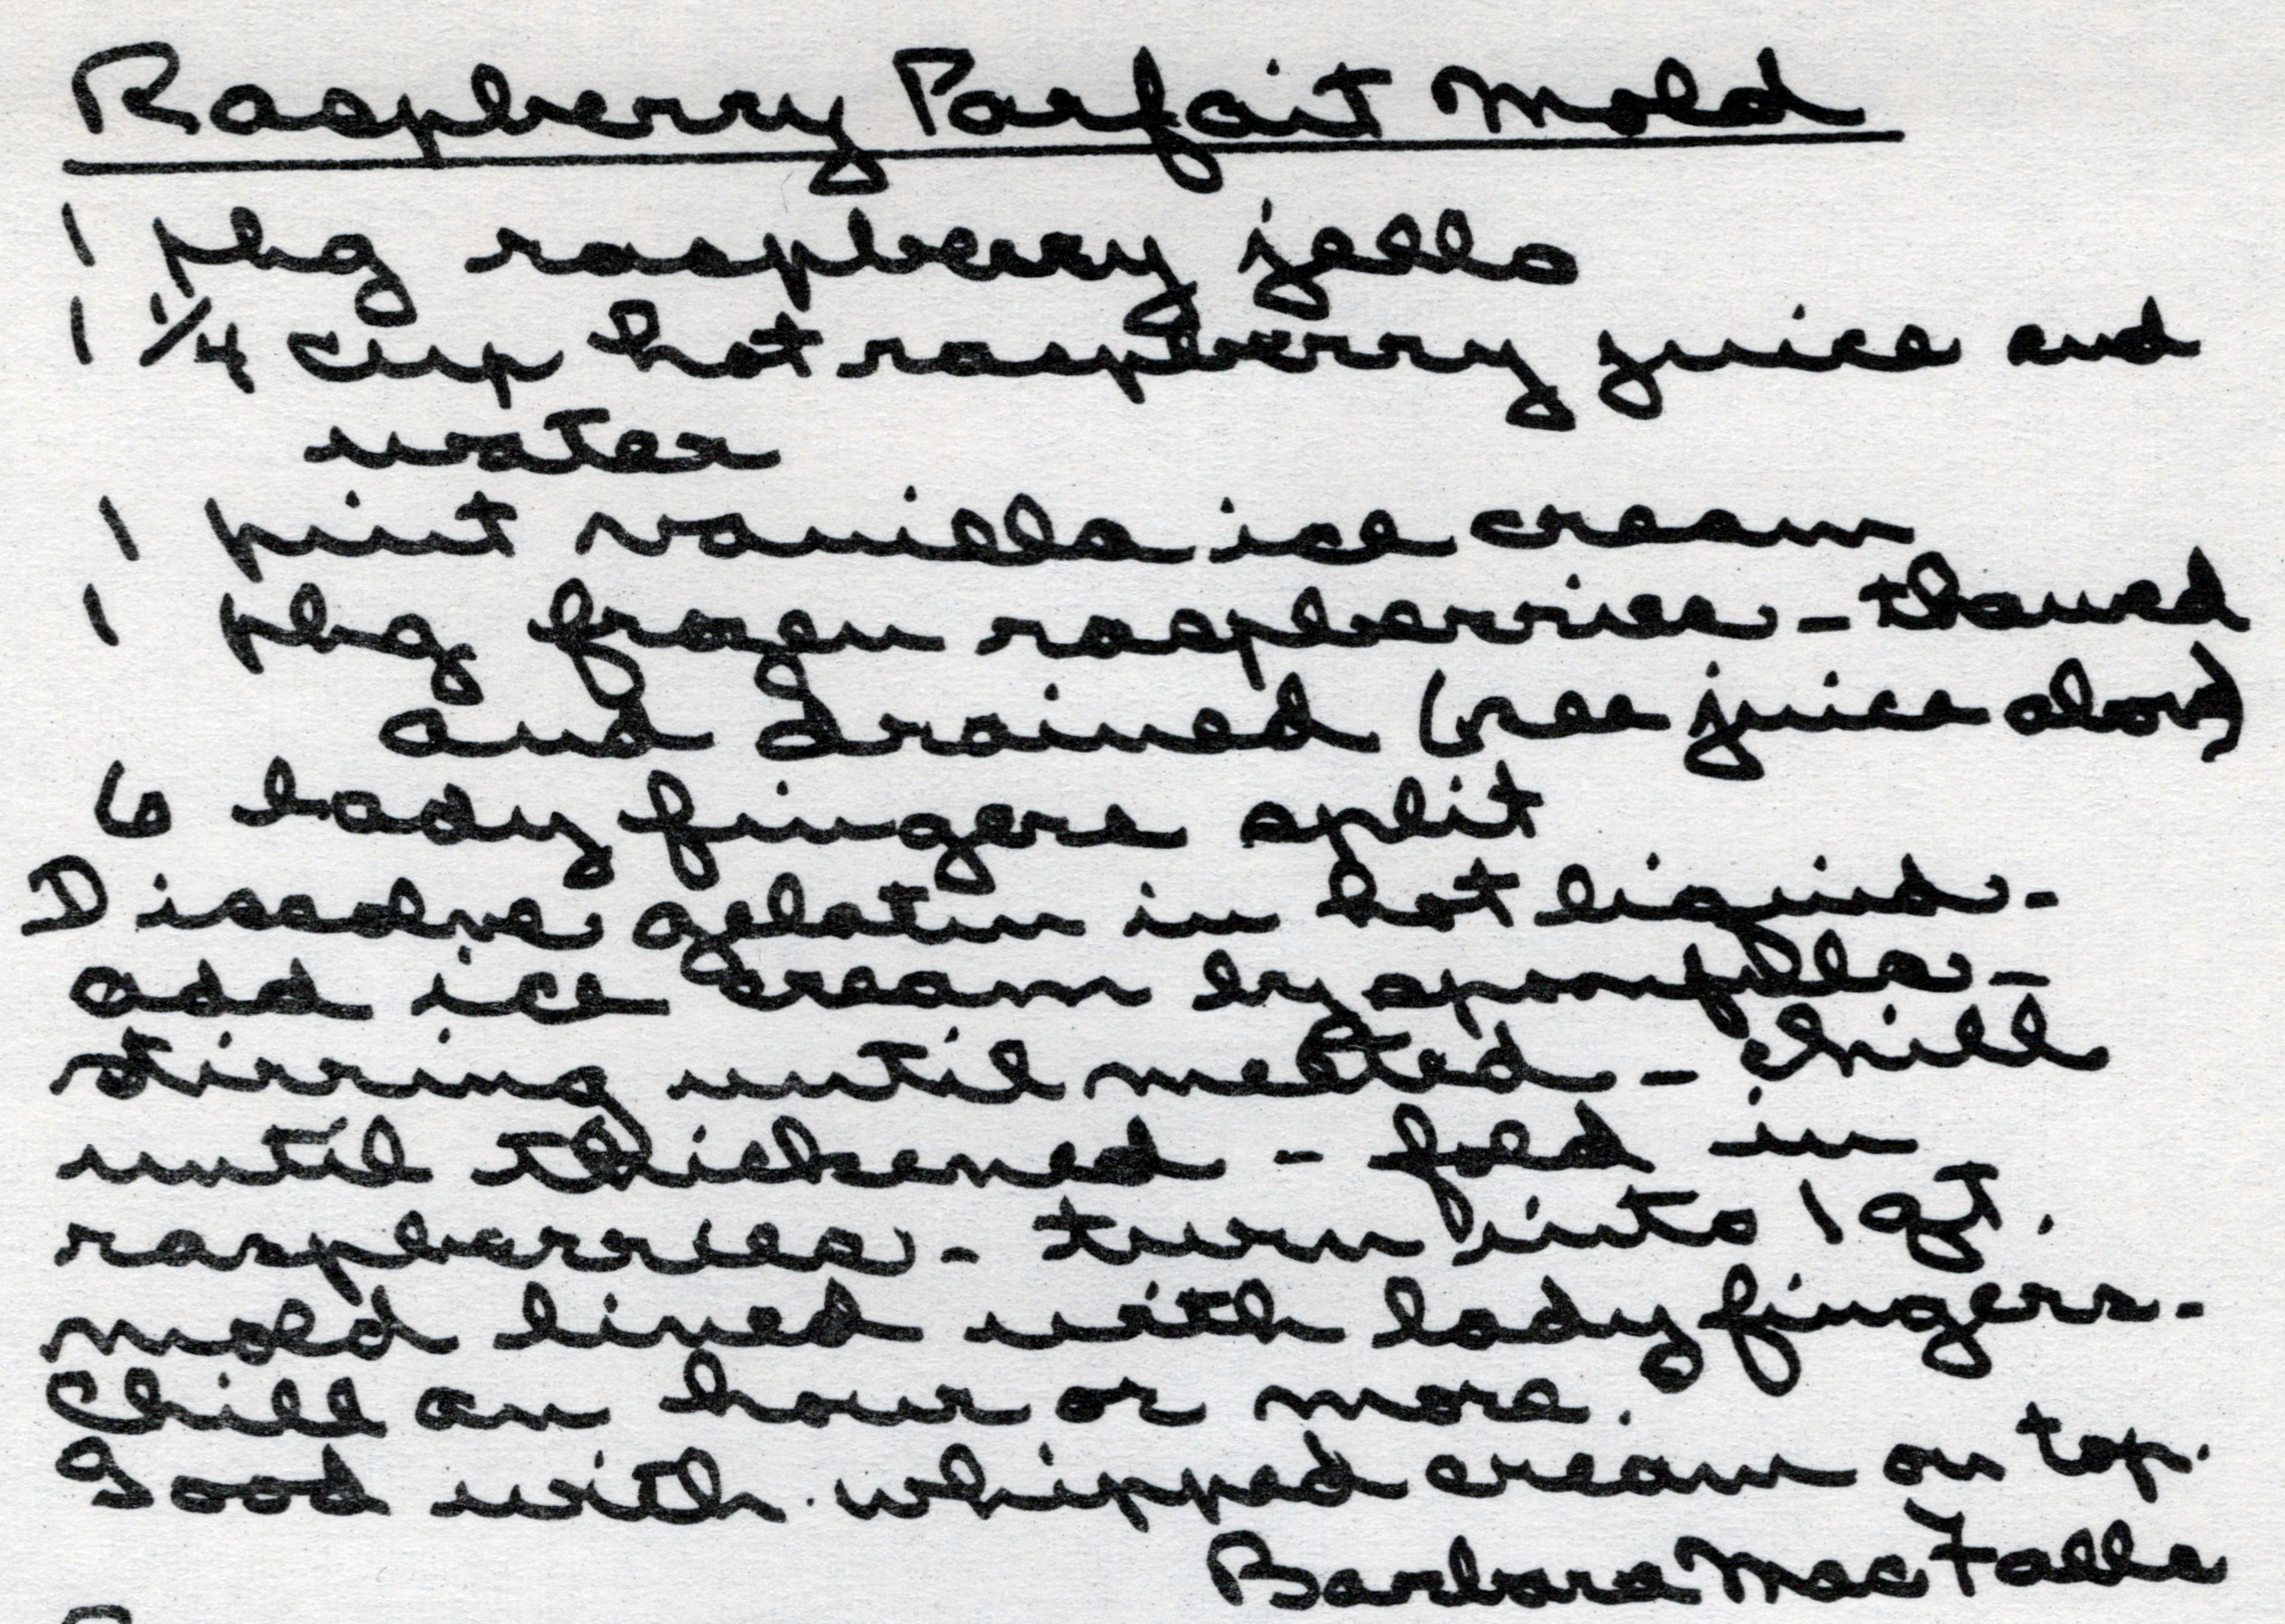 Raspberry Parfait Mold
1 pkg raspberry jello
1 1/4 cup hot raspberry juice and
water
1 pint vanilla ice cream
1 pkg frozen raspberries - thawed
and drained (see juice above)
6 lady fingers split
Dissolve gelatin in hot liquid -
add ice cream by spoonfuls -
stirring until melted - chill
until thickened - fold in
raspberries - turn into 1 qt.
mold lined with lady fingers -
Chill an hour or more.
Good with whipped cream on top.
Barbara MacFalls